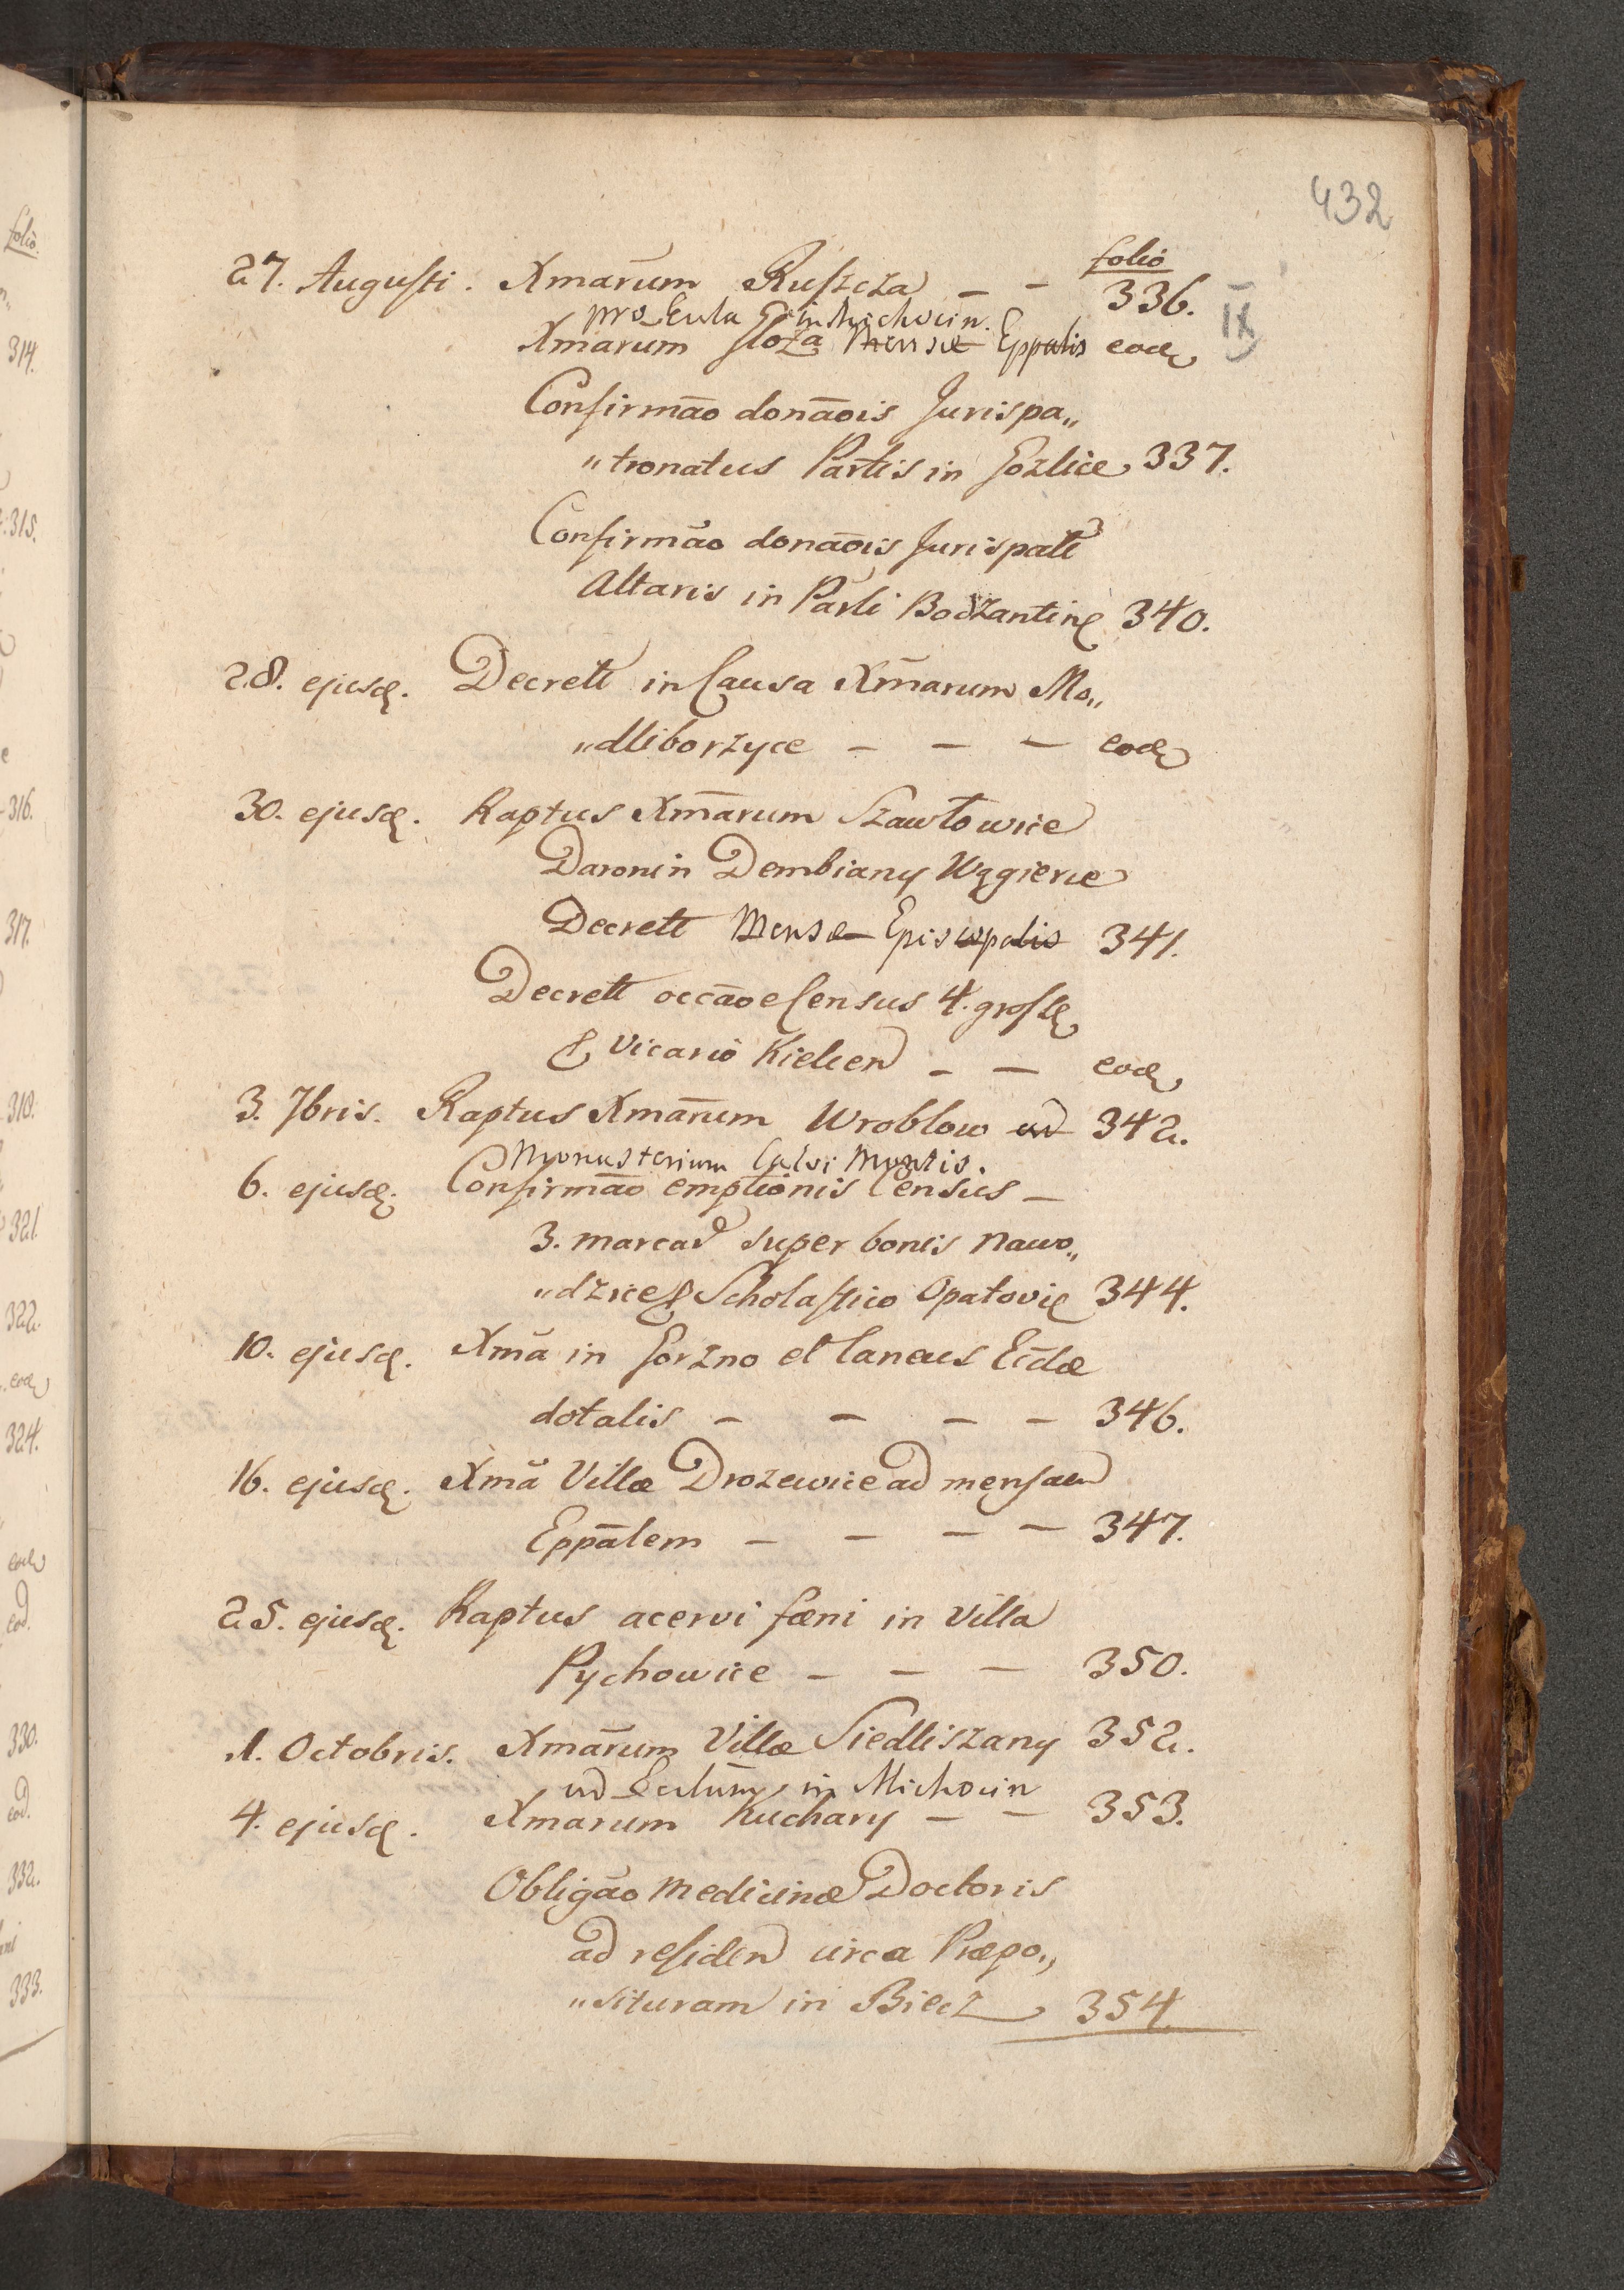 432
folio
27. Augusti. Xmarum Ruszcza — — 336.
IX
pro Eccla in Michocin.
Xmarum Sloza Mensæ Eppalis eod
Confirmāo donāois Jurispa„
„tronatus Partis in Gozlice 337.
Confirmāo donāois Jurispatt
Altaris in Parli Bodzantin 340.
28. ejusd. Decrett in Causa Xmārum Mo„
„dliborzyce — — — eod
30. ejusd. Raptus Xmārum Szawłowice
Daromin Dembiany Wągierce
Decrett Mensæ Episcopalis 341.
Decrett occāoe Census 4. gross
Vicario Kielcen — — eod
3. 7bris. Raptus Xmārum Wroblow ad 342.
Monasterium Calvi Montis.
6. ejusd. Confirmāo emptionis Census —
3. marcar super bonis Nawo„
„dzice Scholastico Opatovi 344.
10. ejusd. Xmā in Gorzno et laneus Ecclæ
dotalis — — — — 346.
16. ejusd. Xmā Villæ Drozewice ad mensam
Eppālem — — — — 347.
25. ejusd. Raptus acervi fæni in Villa
Pychowice — — — 350.
1. Octobris. Xmārum Villæ Siedliszany 352.
ad Ecclūm in Michocin
4. ejusd. Xmarum Kuchary — — 353.
Obligāo Medicinæ Doctoris
ad residen circa Præpo„
„situram in Biecz 354